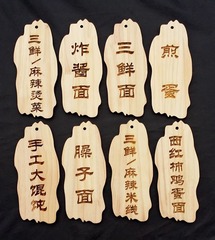 三鲜/麻辣烫菜
炸酱面
三鲜面
煎蛋
手工大馄饨
臊子面
三鲜/麻辣米线
西红柿鸡蛋面